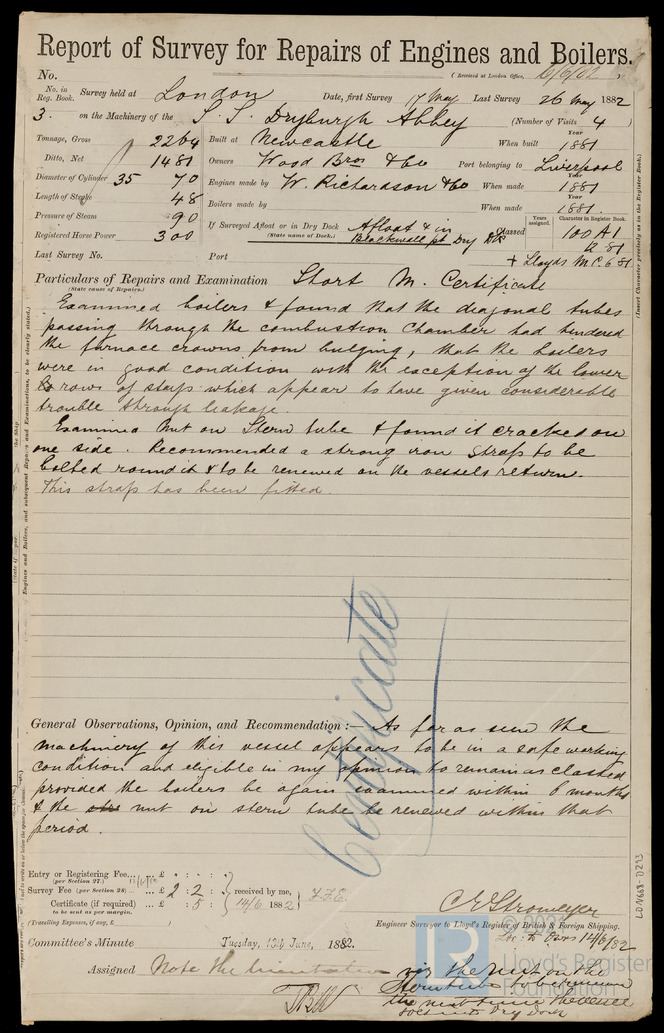 Report of Survey for Repairs of Engines and Boilers.
No. (Received at London Office, 6/6/82)
No. in Reg. Book. Survey held at London Date, first Survey 17 May Last Survey 26 May 1882
3. on the Machinery of the S. S. Dryburgh Abbey (Number of Visits 4)
Tonnage, Gross 2264 Built at Newcastle When built Year 1881
Ditto, Net 1481 Owners Wood Bros & Co Port belonging to Liverpool
Diameter of Cylinder 35 70 Engines made by W. Richardson & Co When made Year 1881
Length of Stroke 48 Boilers made by When made 1881
Pressure of Steam 90 If Surveyed Afloat or in Dry Dock Afloat & in Blackwall pt Dry Dk
(State name of Dock.)
Years assigned. Character in Register Book.
Classed 100 A1
12 81
Registered Horse Power 300
Last Survey No. Port + Lloyds M.C. 6 81
Particulars of Repairs and Examination Short M. Certificate
(State cause of Repairs.)
Examined boilers & found that the diagonal tubes
passing through the combustion chamber had hindered
the furnace crowns from bulging, that the boilers
were in good condition with the exception of the lower
rows of stays which appear to have given considerable
trouble through leakage.
Examined nut on Stern tube & found it cracked on
one side. Recommended a strong iron strap to be
bolted round it & to be renewed on the vessels return.
This strap has been fitted.
Certificate
General Observations, Opinion, and Recommendation:— As far as seen the
machinery of this vessel appears to be in a safe working
condition and eligible in my opinion to remain as classed
provided the boilers be again examined within 6 months
& the nut on stern tube be renewed within that
period.
Entry or Registering Fee... £ : :
(per Section 27.)
Survey Fee (per Section 28)... £ 2 : 2 : received by me,
Certificate (if required) .. £ : 5 : 14/6 1882
to be sent as per margin.
(Travelling Expenses, if any, £ )
C E Stromeyer
Engineer Surveyor to Lloyd's Register of British & Foreign Shipping.
14/6/82
Committee's Minute Tuesday, 13th June, 1882.
Assigned Note the
viz the nut on the
Sterntube to be renewed
the next time the vessel
is in Dry Dock
(Insert Character precisely as in the Register Book.)
LDN668-0293
© 2021
Lloyd's Register
Foundation